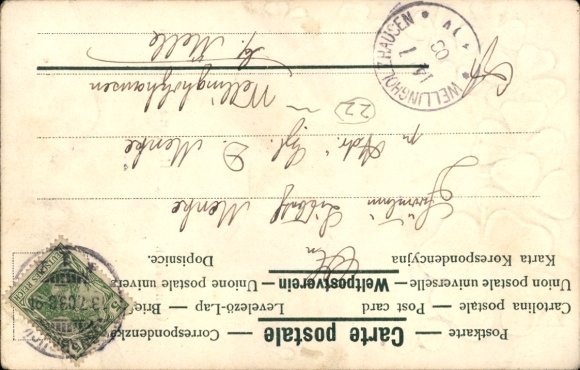 Carte postale
Postkarte — Correspondenzkarte
Cartolina postale — Post card — Levelező-Lap — Brief
Union postale universelle — Weltpostverein — Unione postale univers
Karta Korespondencyjna Dopisnice.
An
Fräulein Menke
p. Adr. D. Menke
22
Wellingholzhausen
Melle
WELLINGHOLZHAUSEN
03